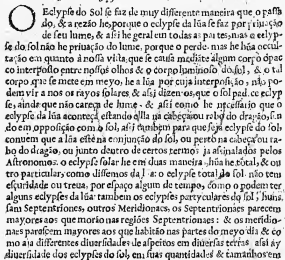 O Eclypse do Sol se faz de muy differente maneira que o passado,
do, & a razão he, porque o eclypse da lũa se faz por privação
de seu lume, & assi he geral em todas as partes, mas o eclypse
do sol não he privação do lume, porque o perde, mas he hũa occultação
em quanto à nossa vista, que se causa mediate algum corpo opaco
interposto entre nossos olhos & o corpo luminoso do sol, & o tal
corpo que se mete em meyo, he a lũa por cuja interposição, não podem
vir a nos os rayos solares & assi dizemos, que o sol pad. eclypse,
ainda que não careça de lume. & assi como he necessario que o
eclypse da lũa aconteça estando ella na cabeça ou rabo do dragão, s. n
do em opposição com o sol, assi tambem para que seja eclypse do sol
convem que a lũa estè na conjunção do sol, ou perto na cabeça ou rabo
do dragão, ou junto dentro de certos termos ja assinalados pellos
Astronomos. o eclypse solar he em duas maneiras hũa he total, & outro
particular, como dissemos da lũa: o eclypse total do sol não tem
escuridade ou treva, por espaço algum de tempo, como o podem ter
alguns eclypses da lũa: tambem os eclypses particulares do sol, hũns
sam Septentriones, outros Meridionaes, os Septentrionaes parecem
mayores aos que morão nas regiões Septentrionaes: & os meridionaes
parescem mayores aos que habitão nas partes do meyo dia & como
ha differentes diversidades de aspeitos em diversas terras assi ay
diversidade dos eclypses do sol, em suas quantidades & tamanhos em